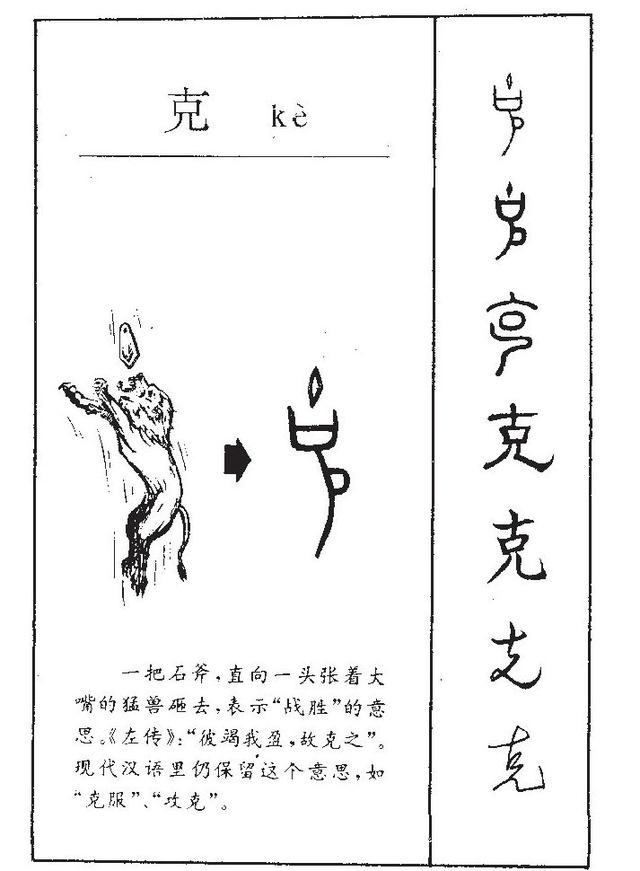 克 kè
一把石斧，直向一头张着大
嘴的猛兽砸去，表示“战胜”的意
思。《左传》：“彼竭我盈，故克之”。
现代汉语里仍保留这个意思，如
“克服”、“攻克”。
克
克
克
克